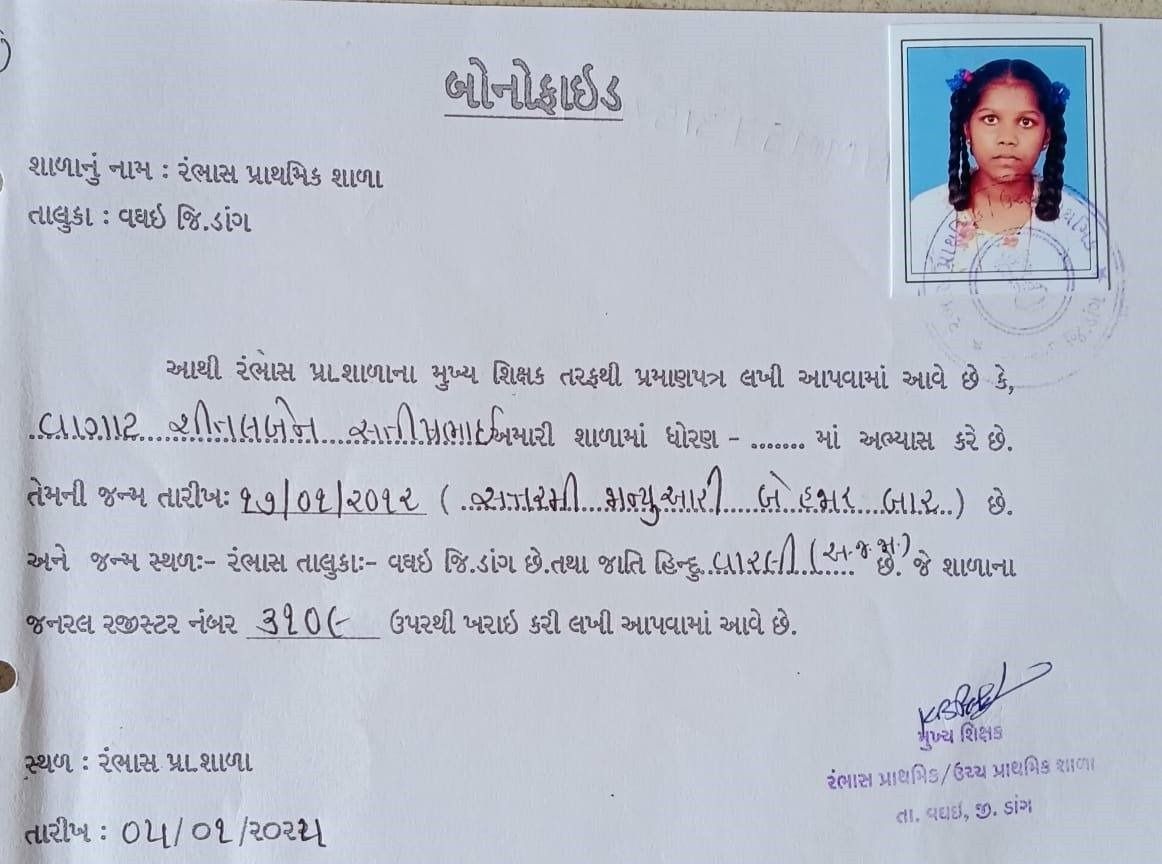 બોનોફાઇડ
શાળાનું નામ : રંભાસ પ્રાથમિક શાળા
તાલુકા : વઘઇ જિ.ડાંગ
આથી રંભાસ પ્રા.શાળાના મુખ્ય શિક્ષક તરફથી પ્રમાણપત્ર લખી આપવામાં આવે છે કે,
શીતલબેન અમારી શાળામાં ધોરણ - ........ માં અભ્યાસ કરે છે.
તેમની જન્મ તારીખઃ ૧૭/૦૧/૨૦૧૨ ( સત્તરમી જાન્યુઆરી બે હજાર બાર ) છે.
અને જન્મ સ્થળઃ- રંભાસ તાલુકાઃ- વઘઇ જિ.ડાંગ છે.તથા જાતિ હિન્દુ વારલી (અ.જ.જા.) છે. જે શાળાના
જનરલ રજીસ્ટર નંબર ૩૧૦૯ ઉપરથી ખરાઇ કરી લખી આપવામાં આવે છે.
મુખ્ય શિક્ષક
સ્થળ : રંભાસ પ્રા.શાળા
રંભાસ પ્રાથમિક/ઉચ્ચ પ્રાથમિક શાળા
તા. વઘઇ, જી. ડાંગ
તારીખ : ૦૫/૦૧/૨૦૨૫